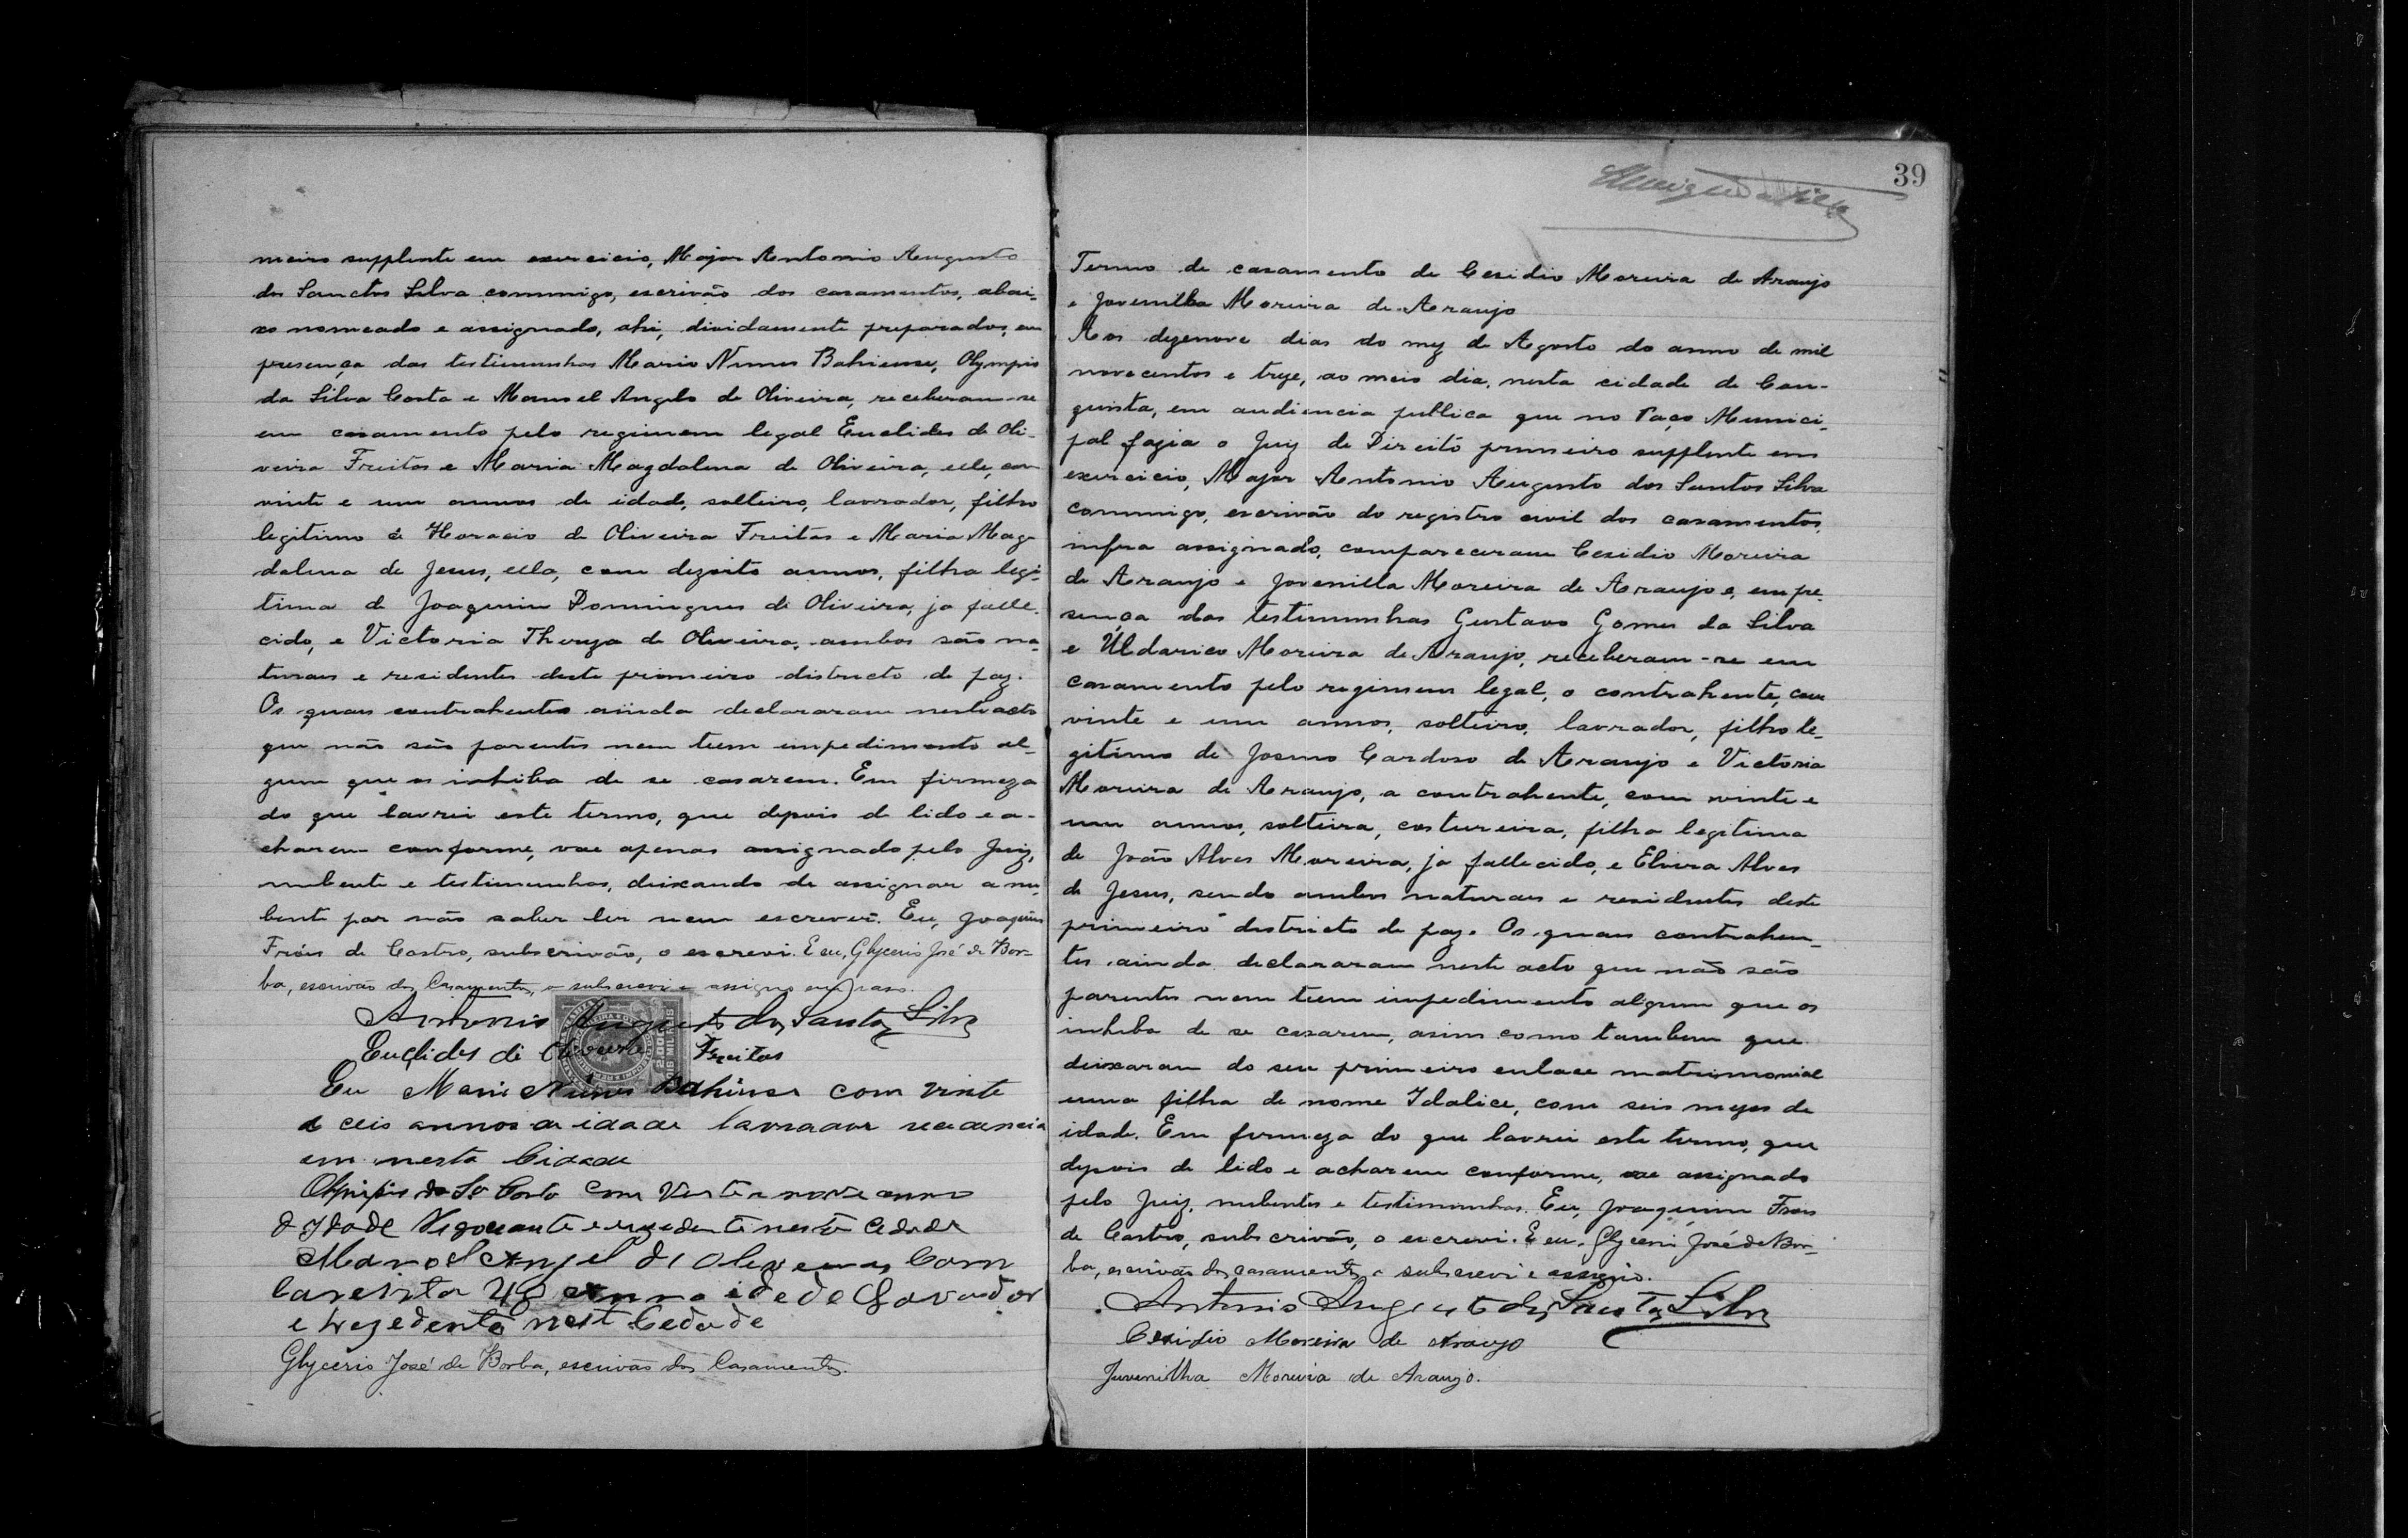 meiro supplente em exercicio, Major Antonio Augusto
dos Sanctos Silva commigo, escrivão dos casamentos, abai-
xo nomeado e assignado, ahi, dividamente preparados, em
presença das testimunhas Mario Nunes Bahiense, Olympio
da Silva Costa e Manoel Angelo de Oliveira, receberam-se
em casamento pelo regimem legal Euclides de Oli-
veira Freitas e Maria Magdalena de Oliveira, elle, com
vinte e um annos de idade, solteiro, lavrador, filho
legitimo de Horacio de Oliveira Freitas e Maria Mag-
dalena de Jesus, ella, com dezoito annos, filha legi-
tima de Joaquim Domingues de Oliveira, ja falle-
cido, e Victoria Thereza de Oliveira, ambos são na-
turaes e residentes deste primeiro districto de paz.
Os quaes contrahentes ainda declararam neste acto
que não são parentes nem teem impedimento al-
gum que os inhiba de se casarem. Em firmeza
do que lavrei este termo, que depois de lido e a-
charem conforme, vae apenas assignado pelo Juiz,
nubente e testimunhas, deixando de assignar a nu-
bente por não saber ler nem escrever. Eu, Joaquim
Fróes de Castro, subscrivão, o escrevi. E eu, Glycerio José de Bor-
ba, escrivão dos Casamentos, o subscrevi e assigno em raso.
Antonio Augusto dos Santos Silva
Euclides de Oliveira Freitas
Eu Mario Nunes Bahiense com vinte
e ceis annos de idade lavrador recidencia
em nesta Cidade
Olympio da Sa Costa com Vinte e nove anno
d Idade Negociante e rezidente nesta Cidade
Manoel Angel di Oliveira Com
Carenta 40 anno idede Lavador
e rezedente nest Cedade
Glycerio José de Borba, escrivão dos Casamentos.
39
Termo de casamento de Cesidio Moreira de Araujo
e Jovenilha Moreira de Araujo
Aos dezenove dias do mez de Agosto do anno de mil
novecentos e treze, ao meio dia, nesta cidade de Con-
quista, em audiencia publica que no Paço Munici-
pal fazia o Juiz de Direito primeiro supplente em
exercicio, Major Antonio Augusto dos Santos Silva
commigo, escrivão do registro civil dos casamentos,
infra assignado, compareceram Cesidio Moreira
de Araujo e Jovenilla Moreira de Araujo e, em pre-
sença das testimunhas Gustavo Gomes da Silva
e Uldarico Moreira de Araujo, receberam-se em
casamento pelo regimem legal, o contrahente, com
vinte e um annos, solteiro, lavrador, filho le-
gitimo de Josmo Cardoso de Araujo e Victoria
Moreira de Araujo, a contrahente, com vinte e
um annos, solteira, costureira, filha legitima
de João Alves Moreira, ja fallecido, e Elvira Alves
de Jesus, sendo ambos naturaes e residentes deste
primeiro districto de paz. Os quaes contrahen-
tes ainda declararam neste acto que não são
parentes nem teem impedimento algum que os
inhiba de se casarem, asim como tambem que
deixaram do seu primeiro enlace matrimonial
uma filha de nome Idalice, com seis mezes de
idade. Em firmeza do que lavrei este termo, que
depois de lido e acharem conforme, vae assignado
pelo Juiz, nubentes e testimunhas. Eu, Joaquim Froes
de Castro, subscrivão, o escrevi. E eu, Glycerio José de Bor-
ba, escrivão dos casamentos o subscrevi e assigno.
Antonio Augusto dos Santos Silva
Cesidio Moreira de Araujo
Juvenilha Moreira de Araujo.